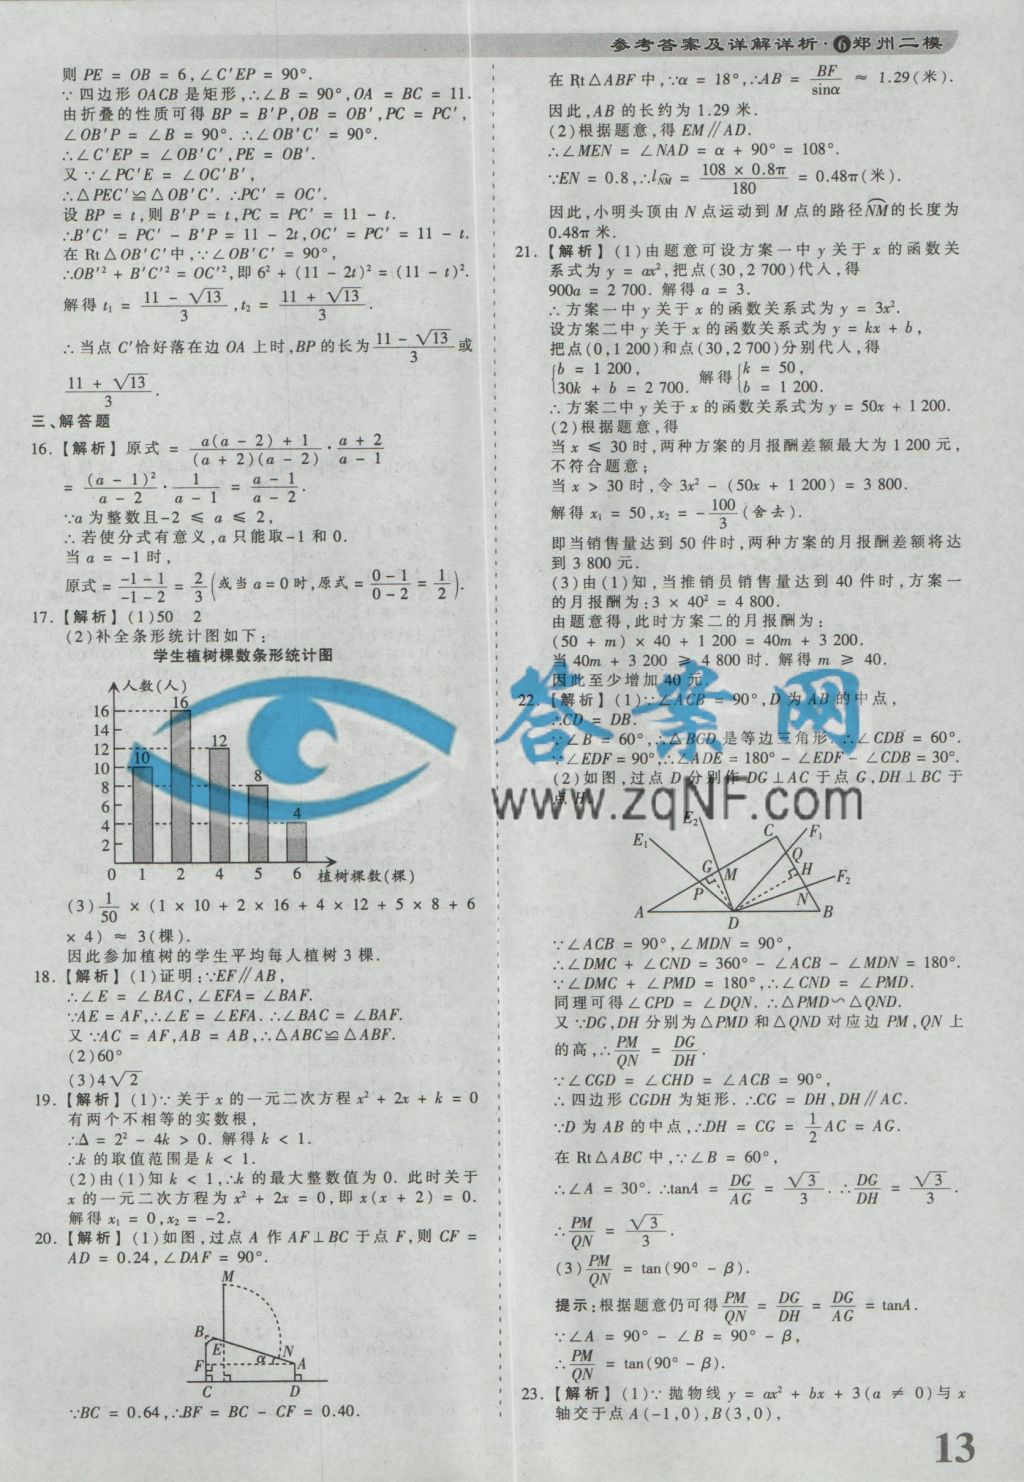 参考答案及详解详析·❻郑州二模
则 PE = OB = 6,∠C′EP = 90°.
∵四边形 OACB 是矩形,∴∠B = 90°,OA = BC = 11.
由折叠的性质可得 BP = B′P,OB = OB′,PC = PC′,
∠OB′P = ∠B = 90°. ∴∠OB′C′ = 90°.
∴∠C′EP = ∠OB′C′,PE = OB′.
又∵∠PC′E = ∠OC′B′,
∴△PEC′≌△OB′C′. ∴PC′ = OC′.
设 BP = t,则 B′P = t,PC = PC′ = 11 - t.
∴B′C′ = PC′ - B′P = 11 - 2t,OC′ = PC′ = 11 - t.
在 Rt△OB′C′中,∵∠OB′C′ = 90°,
∴OB′² + B′C′² = OC′²,即 6² + (11 - 2t)² = (11 - t)².
解得 t₁ = (11 - √13)/3,t₂ = (11 + √13)/3.
∴当点 C′恰好落在边 OA 上时,BP 的长为(11 - √13)/3或
(11 + √13)/3.
三、解答题
16.【解析】原式 = (a(a - 2) + 1)/((a + 2)(a - 2))·(a + 2)/(a - 1)
= (a - 1)²/(a - 2)·1/(a - 1) = (a - 1)/(a - 2).
∵a 为整数且-2 ≤ a ≤ 2,
∴若使分式有意义,a 只能取-1 和 0.
当 a = -1 时,
原式 = (-1 - 1)/(-1 - 2) = 2/3(或当 a = 0 时,原式 = (0 - 1)/(0 - 2) = 1/2).
17.【解析】(1)50 2
(2)补全条形统计图如下:
学生植树棵数条形统计图
人数(人)
16
14
12
10
8
6
4
2
10
16
12
8
4
0 1 2 4 5 6 植树棵数(棵)
(3)1/50 × (1 × 10 + 2 × 16 + 4 × 12 + 5 × 8 + 6
× 4) ≈ 3(棵).
因此参加植树的学生平均每人植树 3 棵.
18.【解析】(1)证明:∵EF∥AB,
∴∠E = ∠BAC,∠EFA= ∠BAF.
∵AE = AF,∴∠E = ∠EFA. ∴∠BAC = ∠BAF.
又∵AC = AF,AB = AB,∴△ABC≌△ABF.
(2)60°
(3)4√2
19.【解析】(1)∵关于 x 的一元二次方程 x² + 2x + k = 0
有两个不相等的实数根,
∴Δ = 2² - 4k > 0. 解得 k < 1.
∴k 的取值范围是 k < 1.
(2)由(1)知 k < 1,∴k 的最大整数值为 0. 此时关于
x 的一元二次方程为 x² + 2x = 0,即 x(x + 2) = 0.
解得 x₁ = 0,x₂ = -2.
20.【解析】(1)如图,过点 A 作 AF⊥BC 于点 F,则 CF =
AD = 0.24,∠DAF = 90°.
M
B
E
α N
F A
C D
∵BC = 0.64,∴BF = BC - CF = 0.40.
在 Rt△ABF 中,∵α = 18°,∴AB = BF/sinα ≈ 1.29(米).
因此,AB 的长约为 1.29 米.
(2)根据题意,得 EM∥AD.
∴∠MEN = ∠NAD = α + 90° = 108°.
∵EN = 0.8,∴l⌒NM = (108 × 0.8π)/180 = 0.48π(米).
因此,小明头顶由 N 点运动到 M 点的路径⌒NM的长度为
0.48π 米.
21.【解析】(1)由题意可设方案一中 y 关于 x 的函数关
系式为 y = ax²,把点(30,2 700)代入,得
900a = 2 700. 解得 a = 3.
∴方案一中 y 关于 x 的函数关系式为 y = 3x².
设方案二中 y 关于 x 的函数关系式为 y = kx + b,
把点(0,1 200)和点(30,2 700)分别代入,得
{b = 1 200, 30k + b = 2 700. 解得{k = 50, b = 1 200.
∴方案二中 y 关于 x 的函数关系式为 y = 50x + 1 200.
(2)根据题意,得
当 x ≤ 30 时,两种方案的月报酬差额最大为 1 200 元,
不符合题意;
当 x > 30 时,令 3x² - (50x + 1 200) = 3 800.
解得 x₁ = 50,x₂ = -100/3(舍去).
即当销售量达到 50 件时,两种方案的月报酬差额将达
到 3 800 元.
(3)由(1)知,当推销员销售量达到 40 件时,方案一
的月报酬为:3 × 40² = 4 800.
由题意得,此时方案二的月报酬为:
(50 + m) × 40 + 1 200 = 40m + 3 200.
当 40m + 3 200 ≥ 4 800 时. 解得 m ≥ 40.
因此至少增加 40 元.
22.【解析】(1)∵∠ACB = 90°,D 为 AB 的中点,
∴CD = DB.
∵∠B = 60°,∴△BCD 是等边三角形. ∴∠CDB = 60°.
∵∠EDF = 90°,∴∠ADE = 180° - ∠EDF - ∠CDB = 30°.
(2)如图,过点 D 分别作 DG⊥AC 于点 G,DH⊥BC 于
点 H.
答案网
www.zqNF.com
E₂
E₁ C F₁
G M Q H F₂
P N
A D B
∵∠ACB = 90°,∠MDN = 90°,
∴∠DMC + ∠CND = 360° - ∠ACB - ∠MDN = 180°.
∵∠DMC + ∠PMD = 180°,∴∠CND = ∠PMD.
同理可得∠CPD = ∠DQN. ∴△PMD∽△QND.
又∵DG,DH 分别为△PMD 和△QND 对应边 PM,QN 上
的高,∴PM/QN = DG/DH.
∵∠CGD = ∠CHD = ∠ACB = 90°,
∴四边形 CGDH 为矩形. ∴CG = DH,DH∥AC.
∵D 为 AB 的中点,∴DH = CG = 1/2 AC = AG.
在 Rt△ABC 中,∵∠B = 60°,
∴∠A = 30°. ∴tanA = DG/AG = √3/3. ∴DG/DH = √3/3.
∴PM/QN = √3/3.
(3)PM/QN = tan(90° - β).
提示:根据题意仍可得PM/QN = DG/DH = DG/AG = tanA.
∵∠A = 90° - ∠B = 90° - β,
∴PM/QN = tan(90° - β).
23.【解析】(1)∵抛物线 y = ax² + bx + 3(a ≠ 0)与 x
轴交于点 A(-1,0),B(3,0),
13